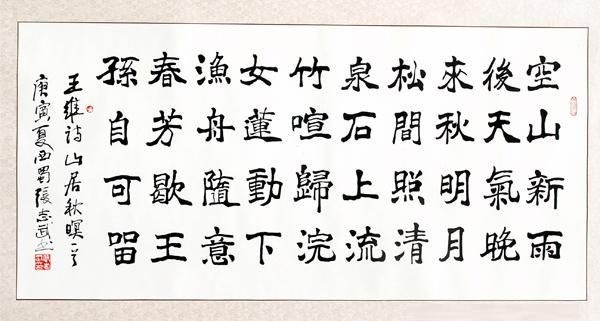 空山新雨
後天氣晚
來秋明月
松間照清
泉石上流
竹喧歸浣
女蓮動下
漁舟隨意
春芳歇王
孫自可留
王維詩山居秋暝一首
庚寅夏西蜀張志武書